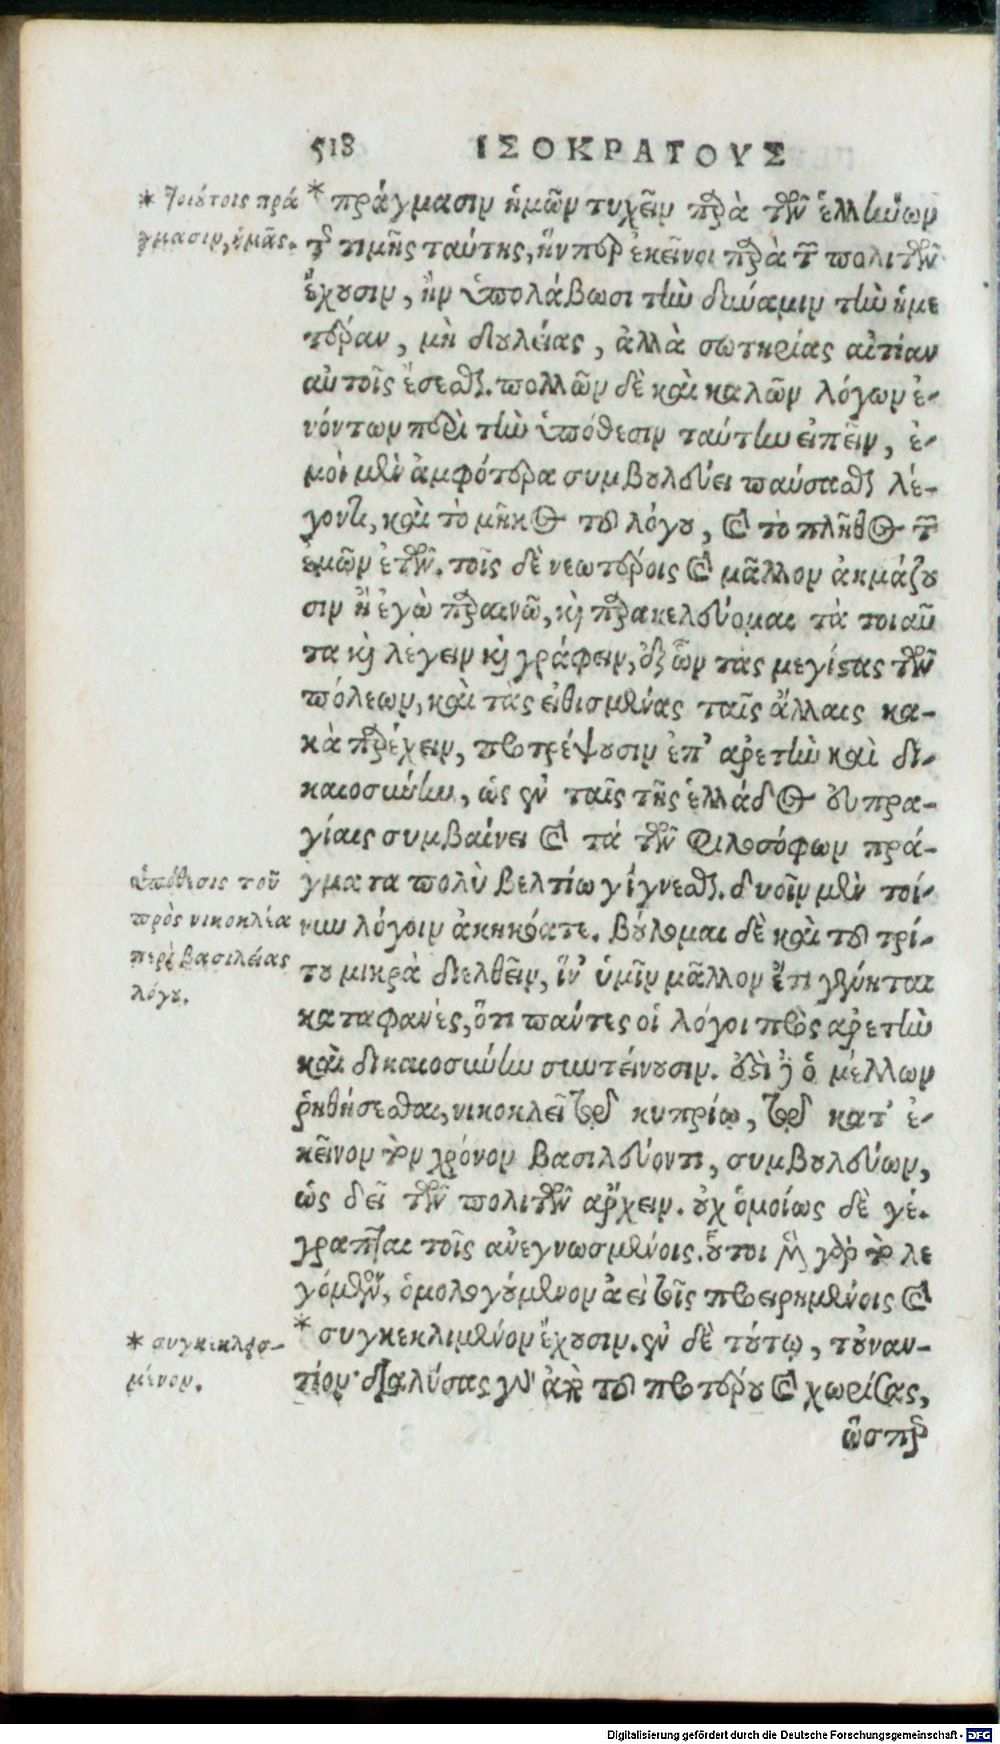 518 ΙΣΟΚΡΑΤΟΥΣ
* Τοιούτοις πρά
γμασιν, ἡμᾶς.
* πράγμασιν ἡμῶν τυχεῖν παρὰ τῶν ἑλλήνων
τῆς τιμῆς ταύτης, ἥνπερ ἐκεῖνοι παρὰ τῶν πολιτῶν
ἔχουσιν, ἢν ὑπολάβωσι τὴν δύναμιν τὴν ἡμε
τέραν, μὴ δουλείας, ἀλλὰ σωτηρίας αἰτίαν
αὐτοῖς ἔσεσθαι. πολλῶν δὲ καὶ καλῶν λόγων ἐ-
νόντων περὶ τὴν ὑπόθεσιν ταύτην εἰπεῖν, ἐ-
μοὶ μὲν ἀμφότερα συμβουλεύει παύσασθαι λέ-
γοντι, καὶ τὸ μῆκος τοῦ λόγου, καὶ τὸ πλῆθος τῶν
ἐμῶν ἐτῶν. τοῖς δὲ νεωτέροις καὶ μᾶλλον ἀκμάζου
σιν ἢ ἐγὼ παραινῶ, καὶ παρακελεύομαι τὰ τοιαῦ
τα καὶ λέγειν καὶ γράφειν, ἐξ ὧν τὰς μεγίστας τῶν
πόλεων, καὶ τὰς εἰθισμένας ταῖς ἄλλαις κα-
κὰ παρέχειν, προτρέψουσιν ἐπ' ἀρετὴν καὶ δι-
καιοσύνην, ὡς ἐν ταῖς τῆς ἑλλάδος εὐπρα-
γίαις συμβαίνει καὶ τὰ τῶν φιλοσόφων πρά-
γματα πολὺ βελτίω γίγνεσθαι. δυοῖν μὲν τοί-
νυν λόγοιν ἀκηκόατε. βούλομαι δὲ καὶ τοῦ τρί-
του μικρὰ διελθεῖν, ἵν' ὑμῖν μᾶλλον ἔτι γένηται
καταφανὲς, ὅτι πάντες οἱ λόγοι πρὸς ἀρετὴν
καὶ δικαιοσύνην συντείνουσιν. ἔστι δὲ ὁ μέλλων
ῥηθήσεσθαι, νικοκλεῖ τῷ κυπρίῳ, τῷ κατ' ἐ-
κεῖνον τὸν χρόνον βασιλεύοντι, συμβουλεύων,
ὡς δεῖ τῶν πολιτῶν ἄρχειν. οὐχ ὁμοίως δὲ γέ-
γραπται τοῖς ἀνεγνωσμένοις. οὗτοι μὲν γὰρ τὸ λε
γόμενον, ὁμολογούμενον ἀεὶ τοῖς προειρημένοις καὶ
* συγκεκλιμένον ἔχουσιν. ἐν δὲ τούτῳ, τοὐναν-
τίον· διαλύσας γὰρ ἀπὸ τοῦ προτέρου καὶ χωρίσας,
ὥσπερ
ὑπόθεσις τοῦ
πρὸς νικοκλέα
περὶ βασιλείας
λόγου.
* συγκεκλεισ-
μένον.
Digitalisierung gefördert durch die Deutsche Forschungsgemeinschaft - DFG